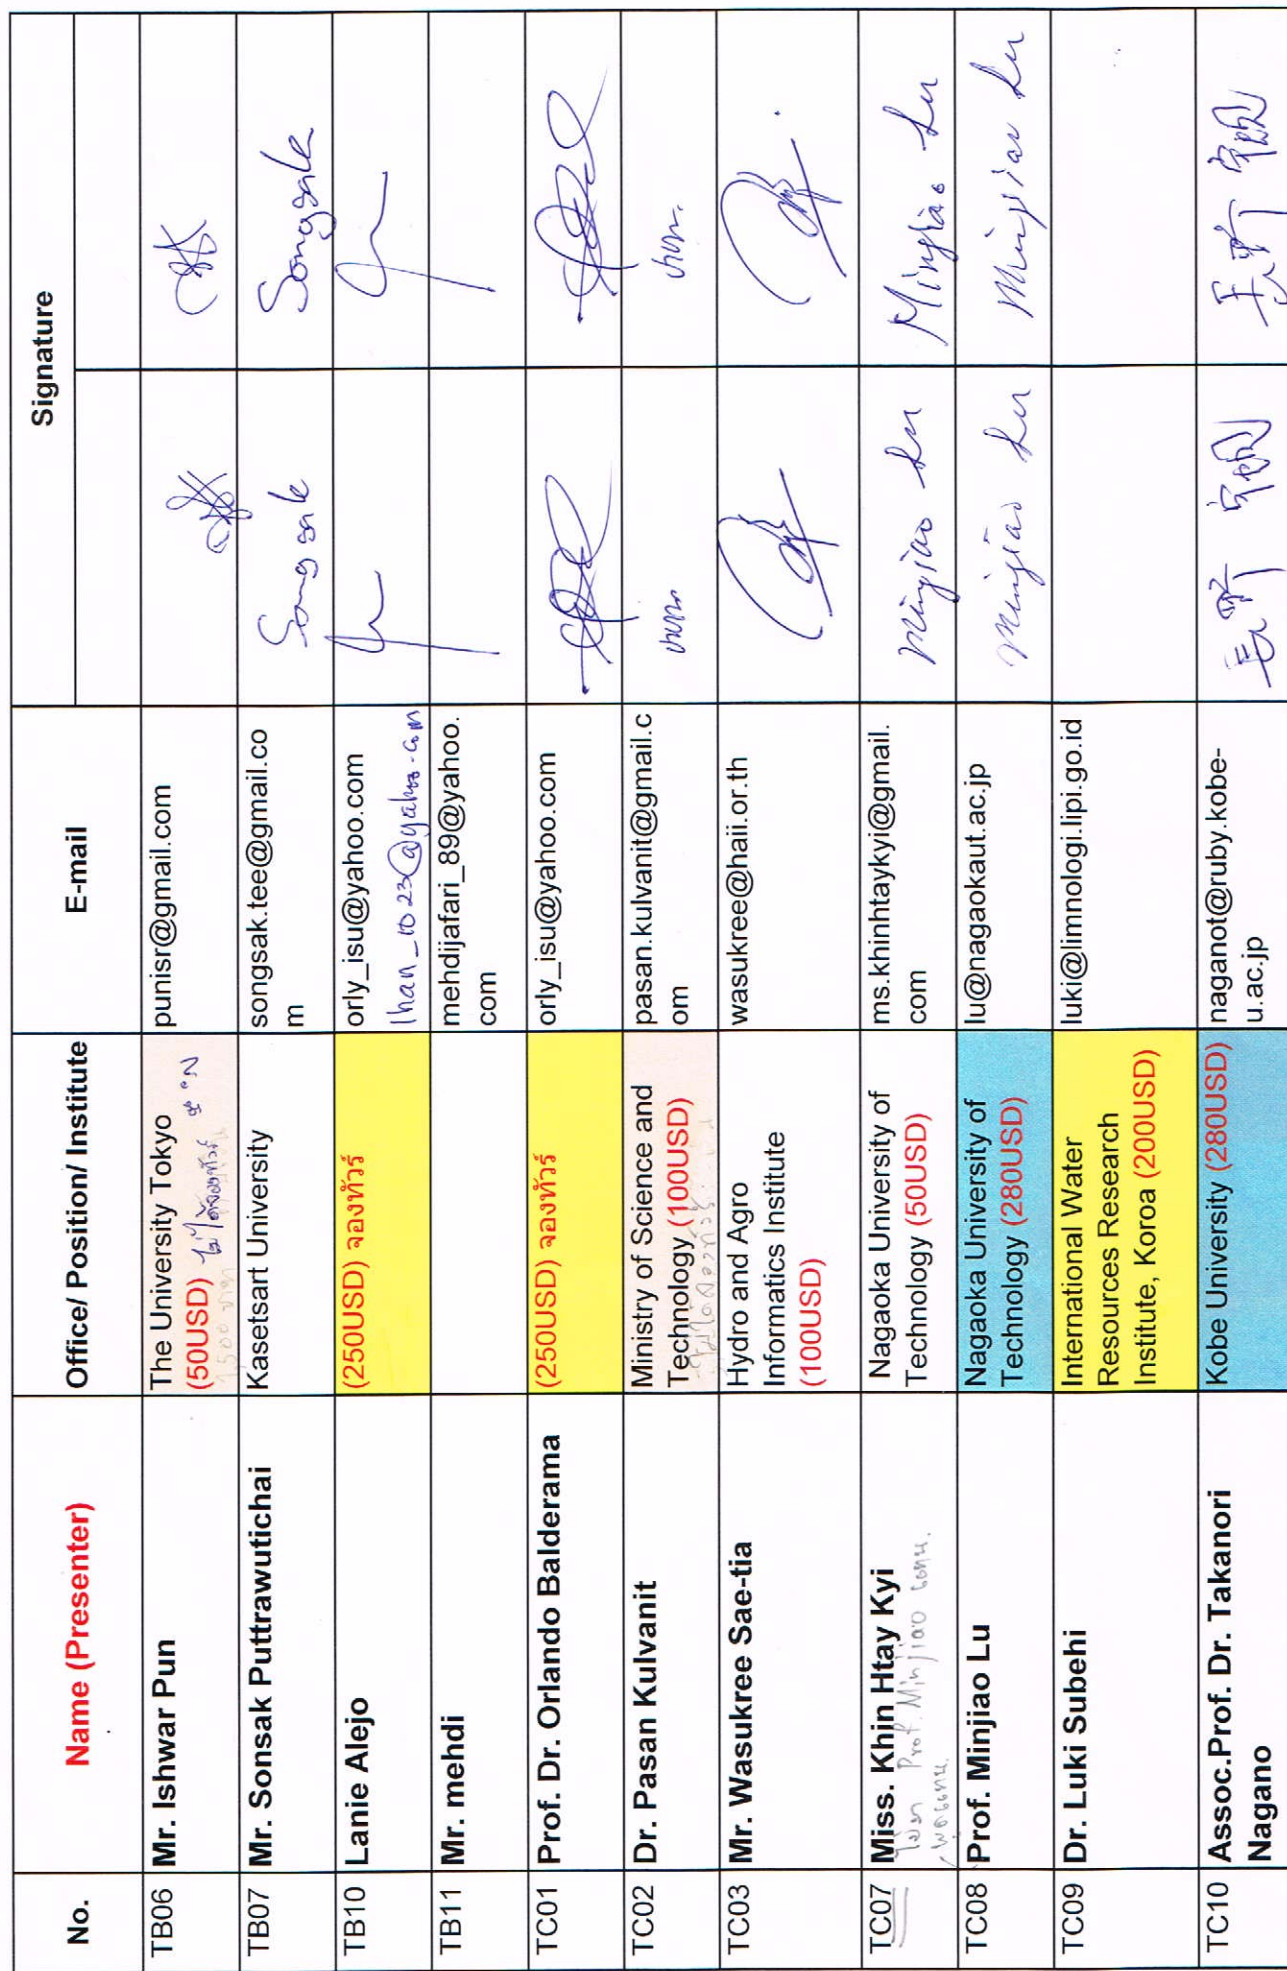 No.
Name (Presenter)
Office/ Position/ Institute
E-mail
Signature
TB06
Mr. Ishwar Pun
The University Tokyo
(50USD) ไม่ได้จองทัวร์
1500 บาท
punisr@gmail.com
TB07
Mr. Sonsak Puttrawutichai
Kasetsart University
songsak.tee@gmail.co
m
Songsak
Songsak
TB10
Lanie Alejo
(250USD) จองทัวร์
orly_isu@yahoo.com
lhan_1023@yahoo.com
TB11
Mr. mehdi
mehdijafari_89@yahoo.
com
TC01
Prof. Dr. Orlando Balderama
(250USD) จองทัวร์
orly_isu@yahoo.com
TC02
Dr. Pasan Kulvanit
Ministry of Science and
Technology (100USD)
ไม่ได้จองทัวร์
pasan.kulvanit@gmail.c
om
TC03
Mr. Wasukree Sae-tia
Hydro and Agro
Informatics Institute
(100USD)
wasukree@haii.or.th
TC07
Miss. Khin Htay Kyi
ไม่มา Prof. Minjiao แทน.
พูดแทน.
Nagaoka University of
Technology (50USD)
ms.khinhtaykyi@gmail.
com
Minjiao Lu
Minjiao Lu
TC08
Prof. Minjiao Lu
Nagaoka University of
Technology (280USD)
lu@nagaokaut.ac.jp
Minjiao Lu
Minjiao Lu
TC09
Dr. Luki Subehi
International Water
Resources Research
Institute, Koroa (200USD)
luki@limnologi.lipi.go.id
TC10
Assoc.Prof. Dr. Takanori
Nagano
Kobe University (280USD)
naganot@ruby.kobe-
u.ac.jp